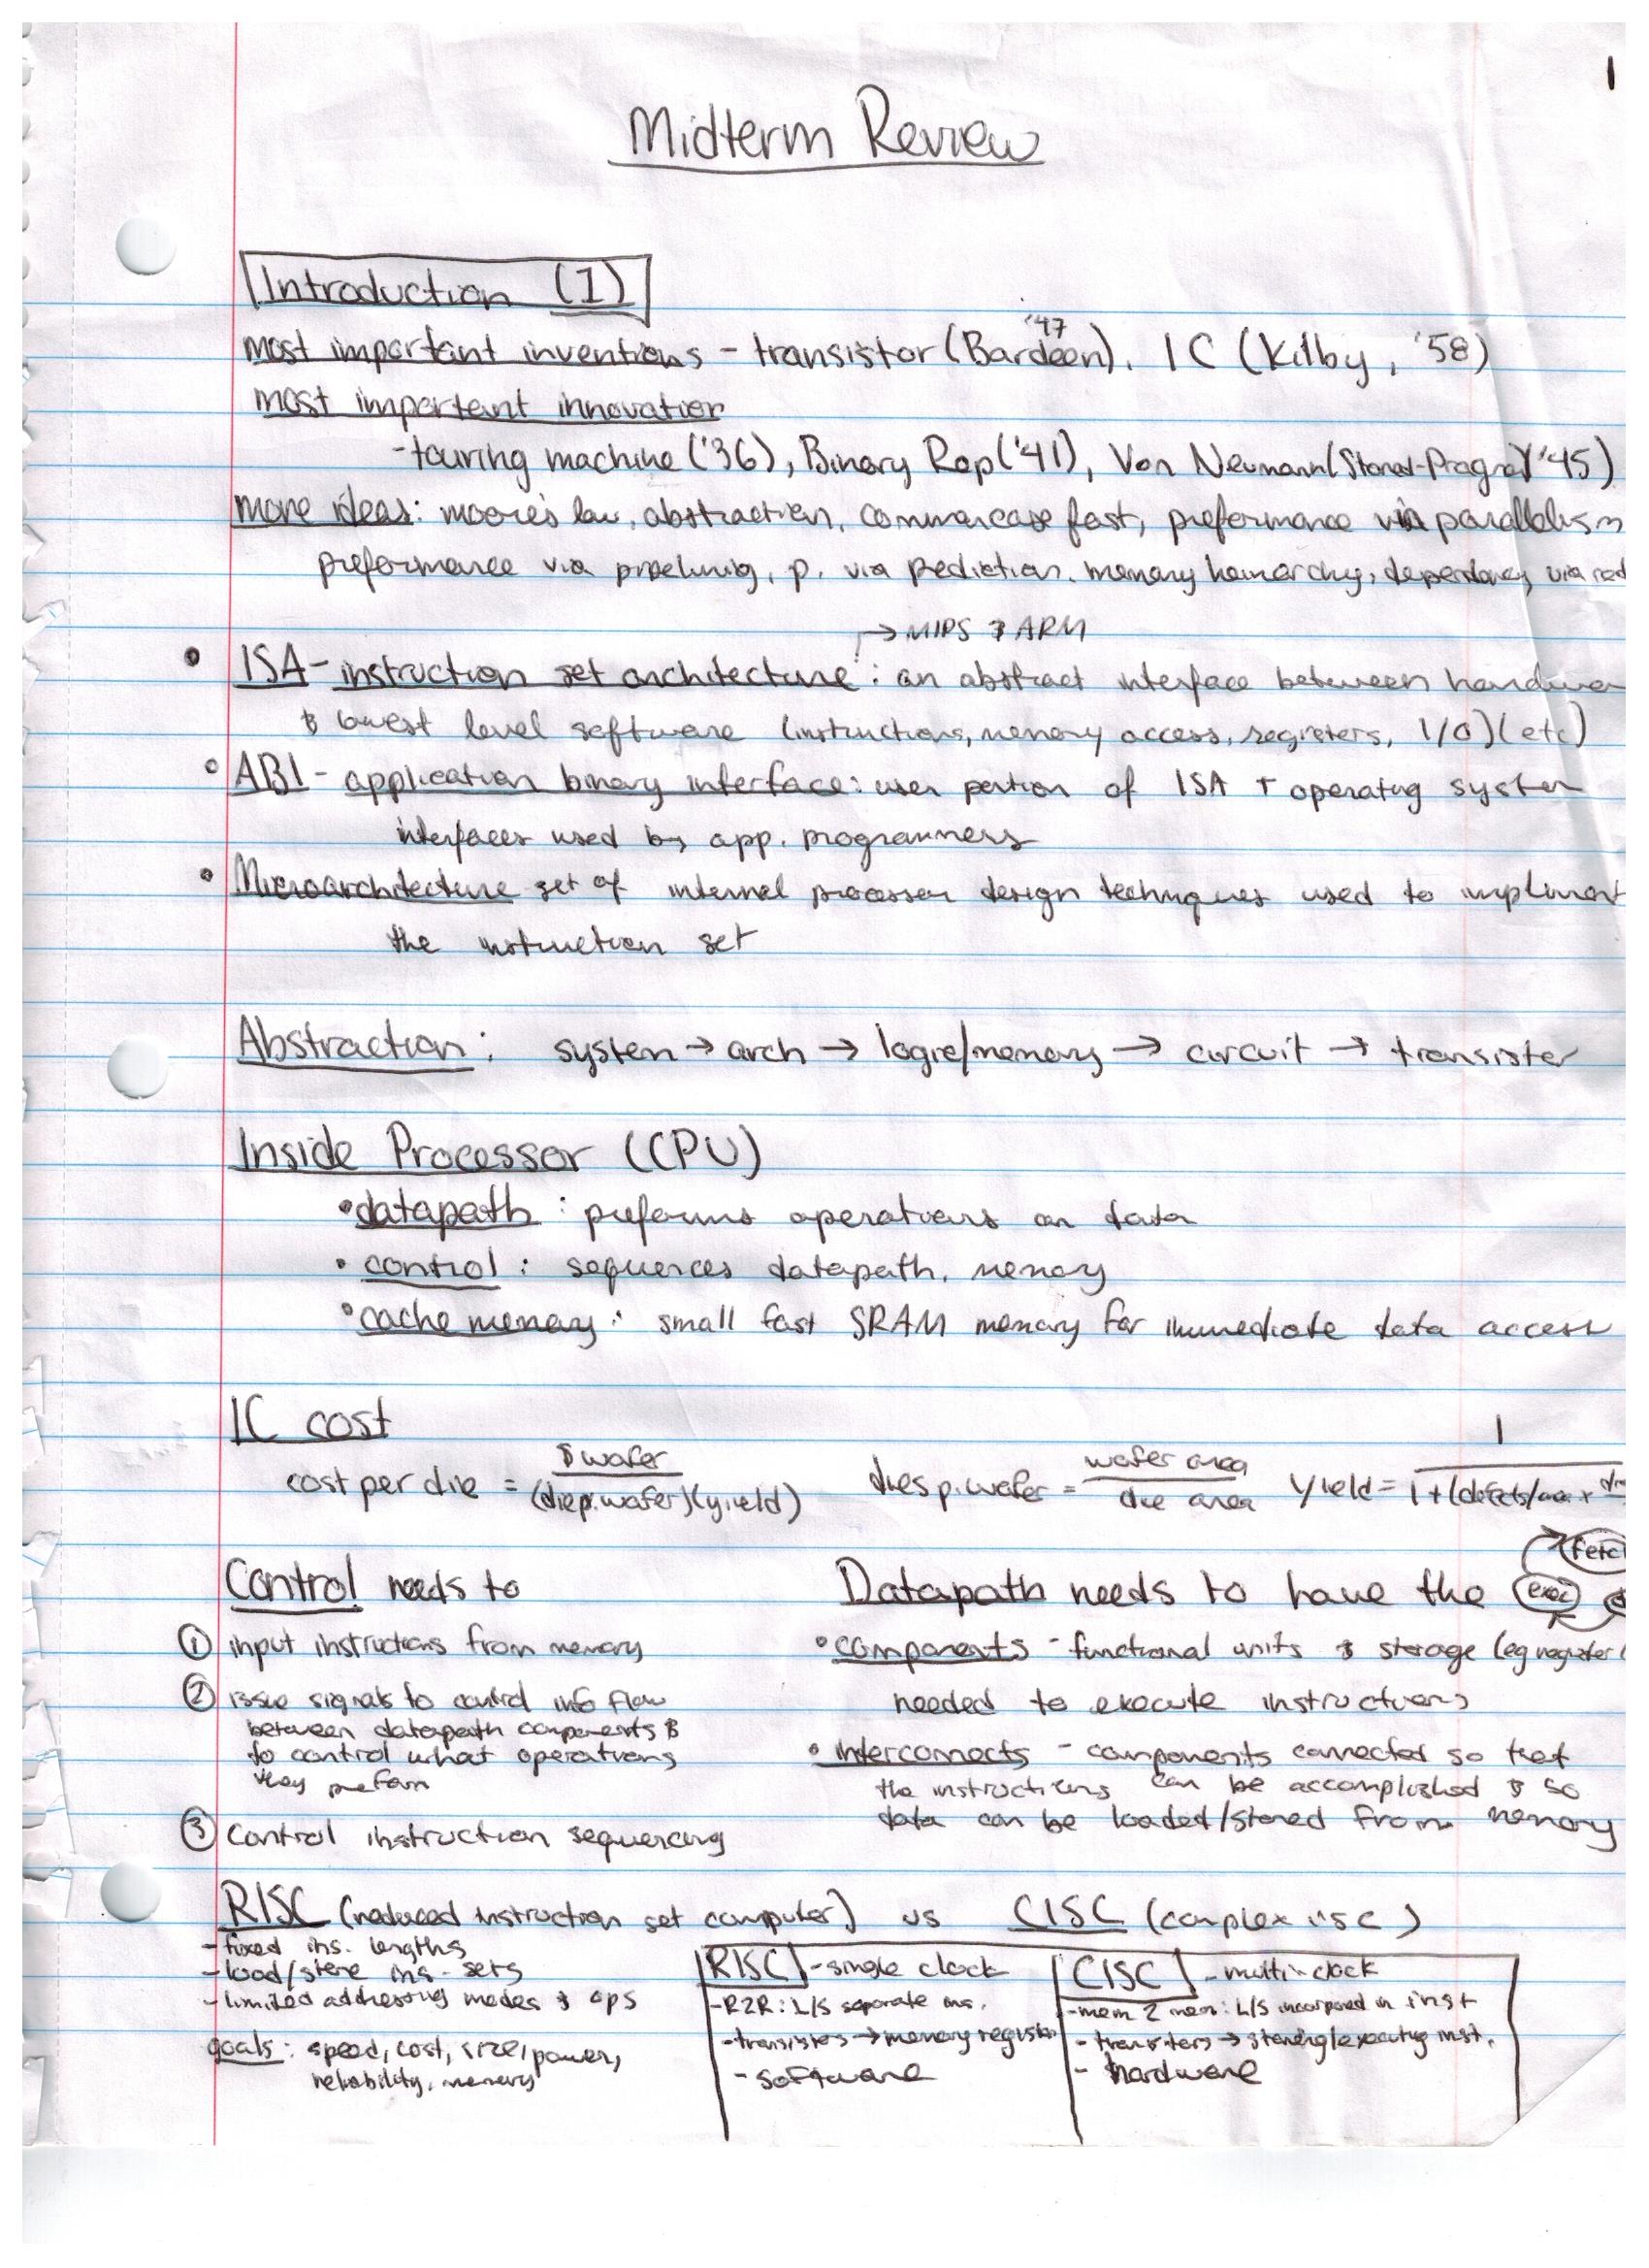 1
Midterm Review
Introduction (1)
'47
most important inventions - transistor (Bardeen), IC (Kilby, '58)
most important innovation
- touring machine ('36), Binary Rep ('41), Von Neumann (Stored-Program) '45)
more ideas: moore's law, abstraction, common case fast, preformance via parallelism
preformance via pipelining, p. via prediction, memory heirarchy, dependancy via red
→ MIPS & ARM
• ISA - instruction set architecture: an abstract interface between hardware
& lowest level software (instructions, memory access, registers, I/O) (etc)
• ABI - application binary interface: user portion of ISA + operating system
interfaces used by app. programmers
• Microarchitecture set of internal processor design techniques used to impliment
the instruction set
Abstraction: system → arch → logic/memory → circuit → transistor
Inside Processor (CPU)
• datapath: preforms operations on data
• control: sequences datapath, memory
• cache memory: small fast SRAM memory for immediate data access
IC cost
cost per die = $ wafer / (die p. wafer)(yield) dies p. wafer = wafer area / die area yield = 1 / 1 + (defects/area x
Control needs to Datapath needs to have the exec
① input instructions from memory
② issue signals to control info flow
between datapath components &
to control what operations
they preform
③ Control instruction sequencing
• components - functional units & storage (eg register
needed to execute instructions
• interconnects - components connected so that
the instructions can be accomplished & so
data can be loaded/stored from memory
RISC (reduced instruction set computer) vs CISC (complex isc)
- fixed ins. lengths
- load/store ins. sets
- limited addressing modes & ops
goals: speed, cost, size, power,
reliability, memory
RISC - single clock
- R2R: L/S separate ins.
- transistors → memory register
- software
CISC - multi-clock
- mem 2 mem: L/S incorpored in inst
- transistors → storing/executing inst.
- hardware